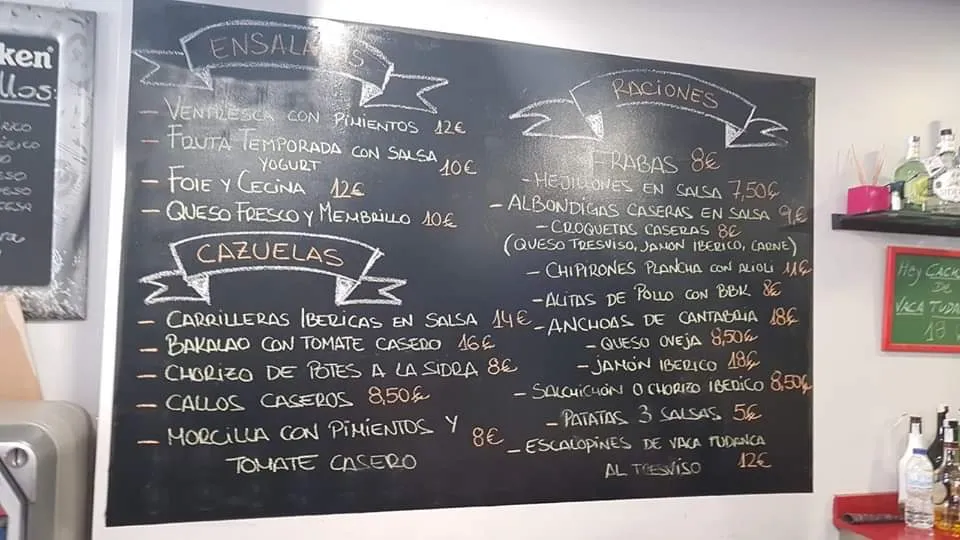 ken
llos:
ENSALA S
- VENTRESCA CON PIMIENTOS 12€
- FRUTA TEMPORADA CON SALSA
YOGURT 10€
- FOIE Y CECINA 12€
- QUESO FRESCO Y MEMBRILLO 10€
CAZUELAS
- CARRILLERAS IBERICAS EN SALSA 14€
- BAKALAO CON TOMATE CASERO 16€
- CHORIZO DE POTES A LA SIDRA 8€
- CALLOS CASEROS 8,50€
- MORCILLA CON PIMIENTOS Y 8€
TOMATE CASERO
RACIONES
RABAS 8€
- MEJILLONES EN SALSA 7,50€
- ALBONDIGAS CASERAS EN SALSA 9€
- CROQUETAS CASERAS 8€
(QUESO TRESVISO, JAMON IBERICO, CARNE)
- CHIPIRONES PLANCHA CON ALIOLI 11€
- ALITAS DE POLLO CON BBK 8€
- ANCHOAS DE CANTABRIA 18€
- QUESO OVEJA 8,50€
- JAMÓN IBERICO 18€
- SALCHICHÓN O CHORIZO IBERICO 8,50€
- PATATAS 3 SALSAS 5€
- ESCALOPINES DE VACA TUDANCA
AL TRESVISO 12€
Hey CACH
DE
VACA TUDA
18